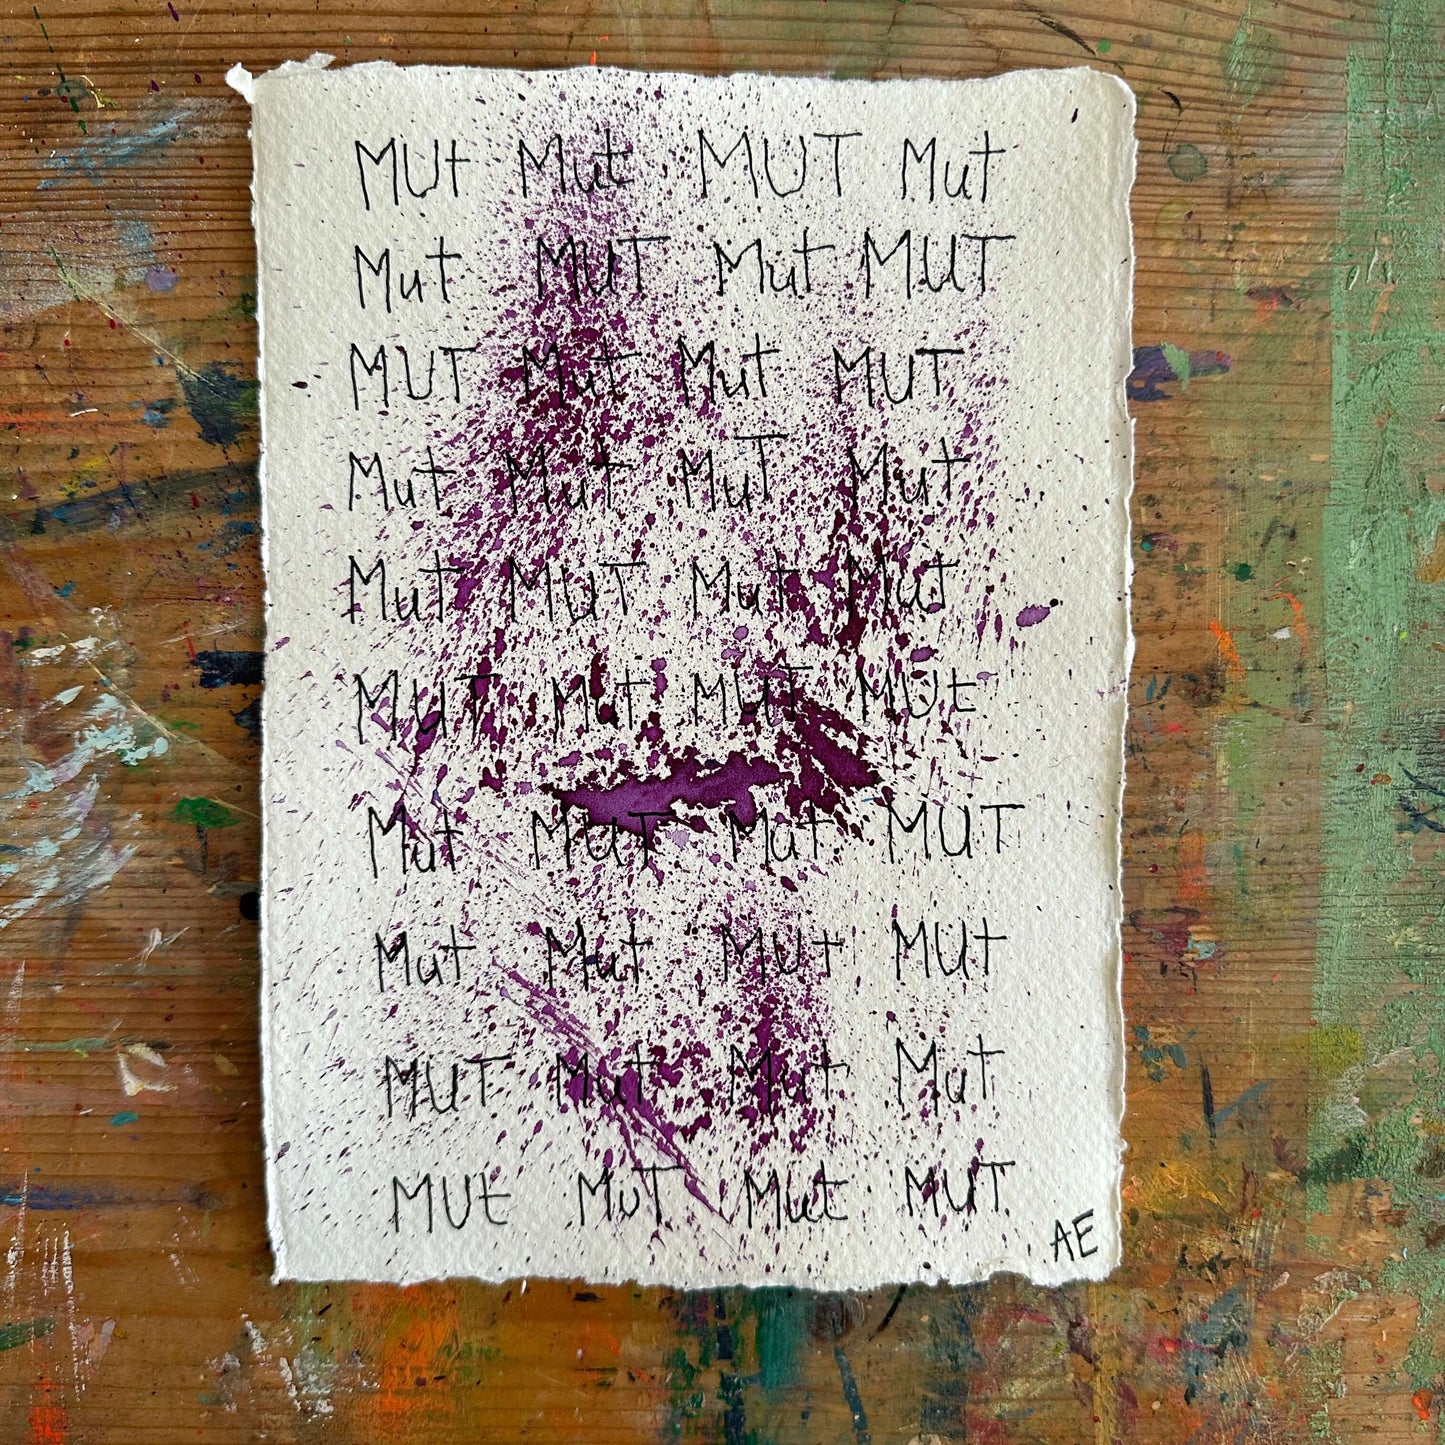 MUt Mut MUT Mut
Mut MUT Mut MUT
MUT Mut Mut MUT
Mut Mut MuT Mut
Mut MUT Mut Mut
MUT Mut MUT MUt
Mut MUT Mut MUT
Mut Mut MUt MUt
MUT Mut Mut Mut
MUt MuT Mut MUT
AE